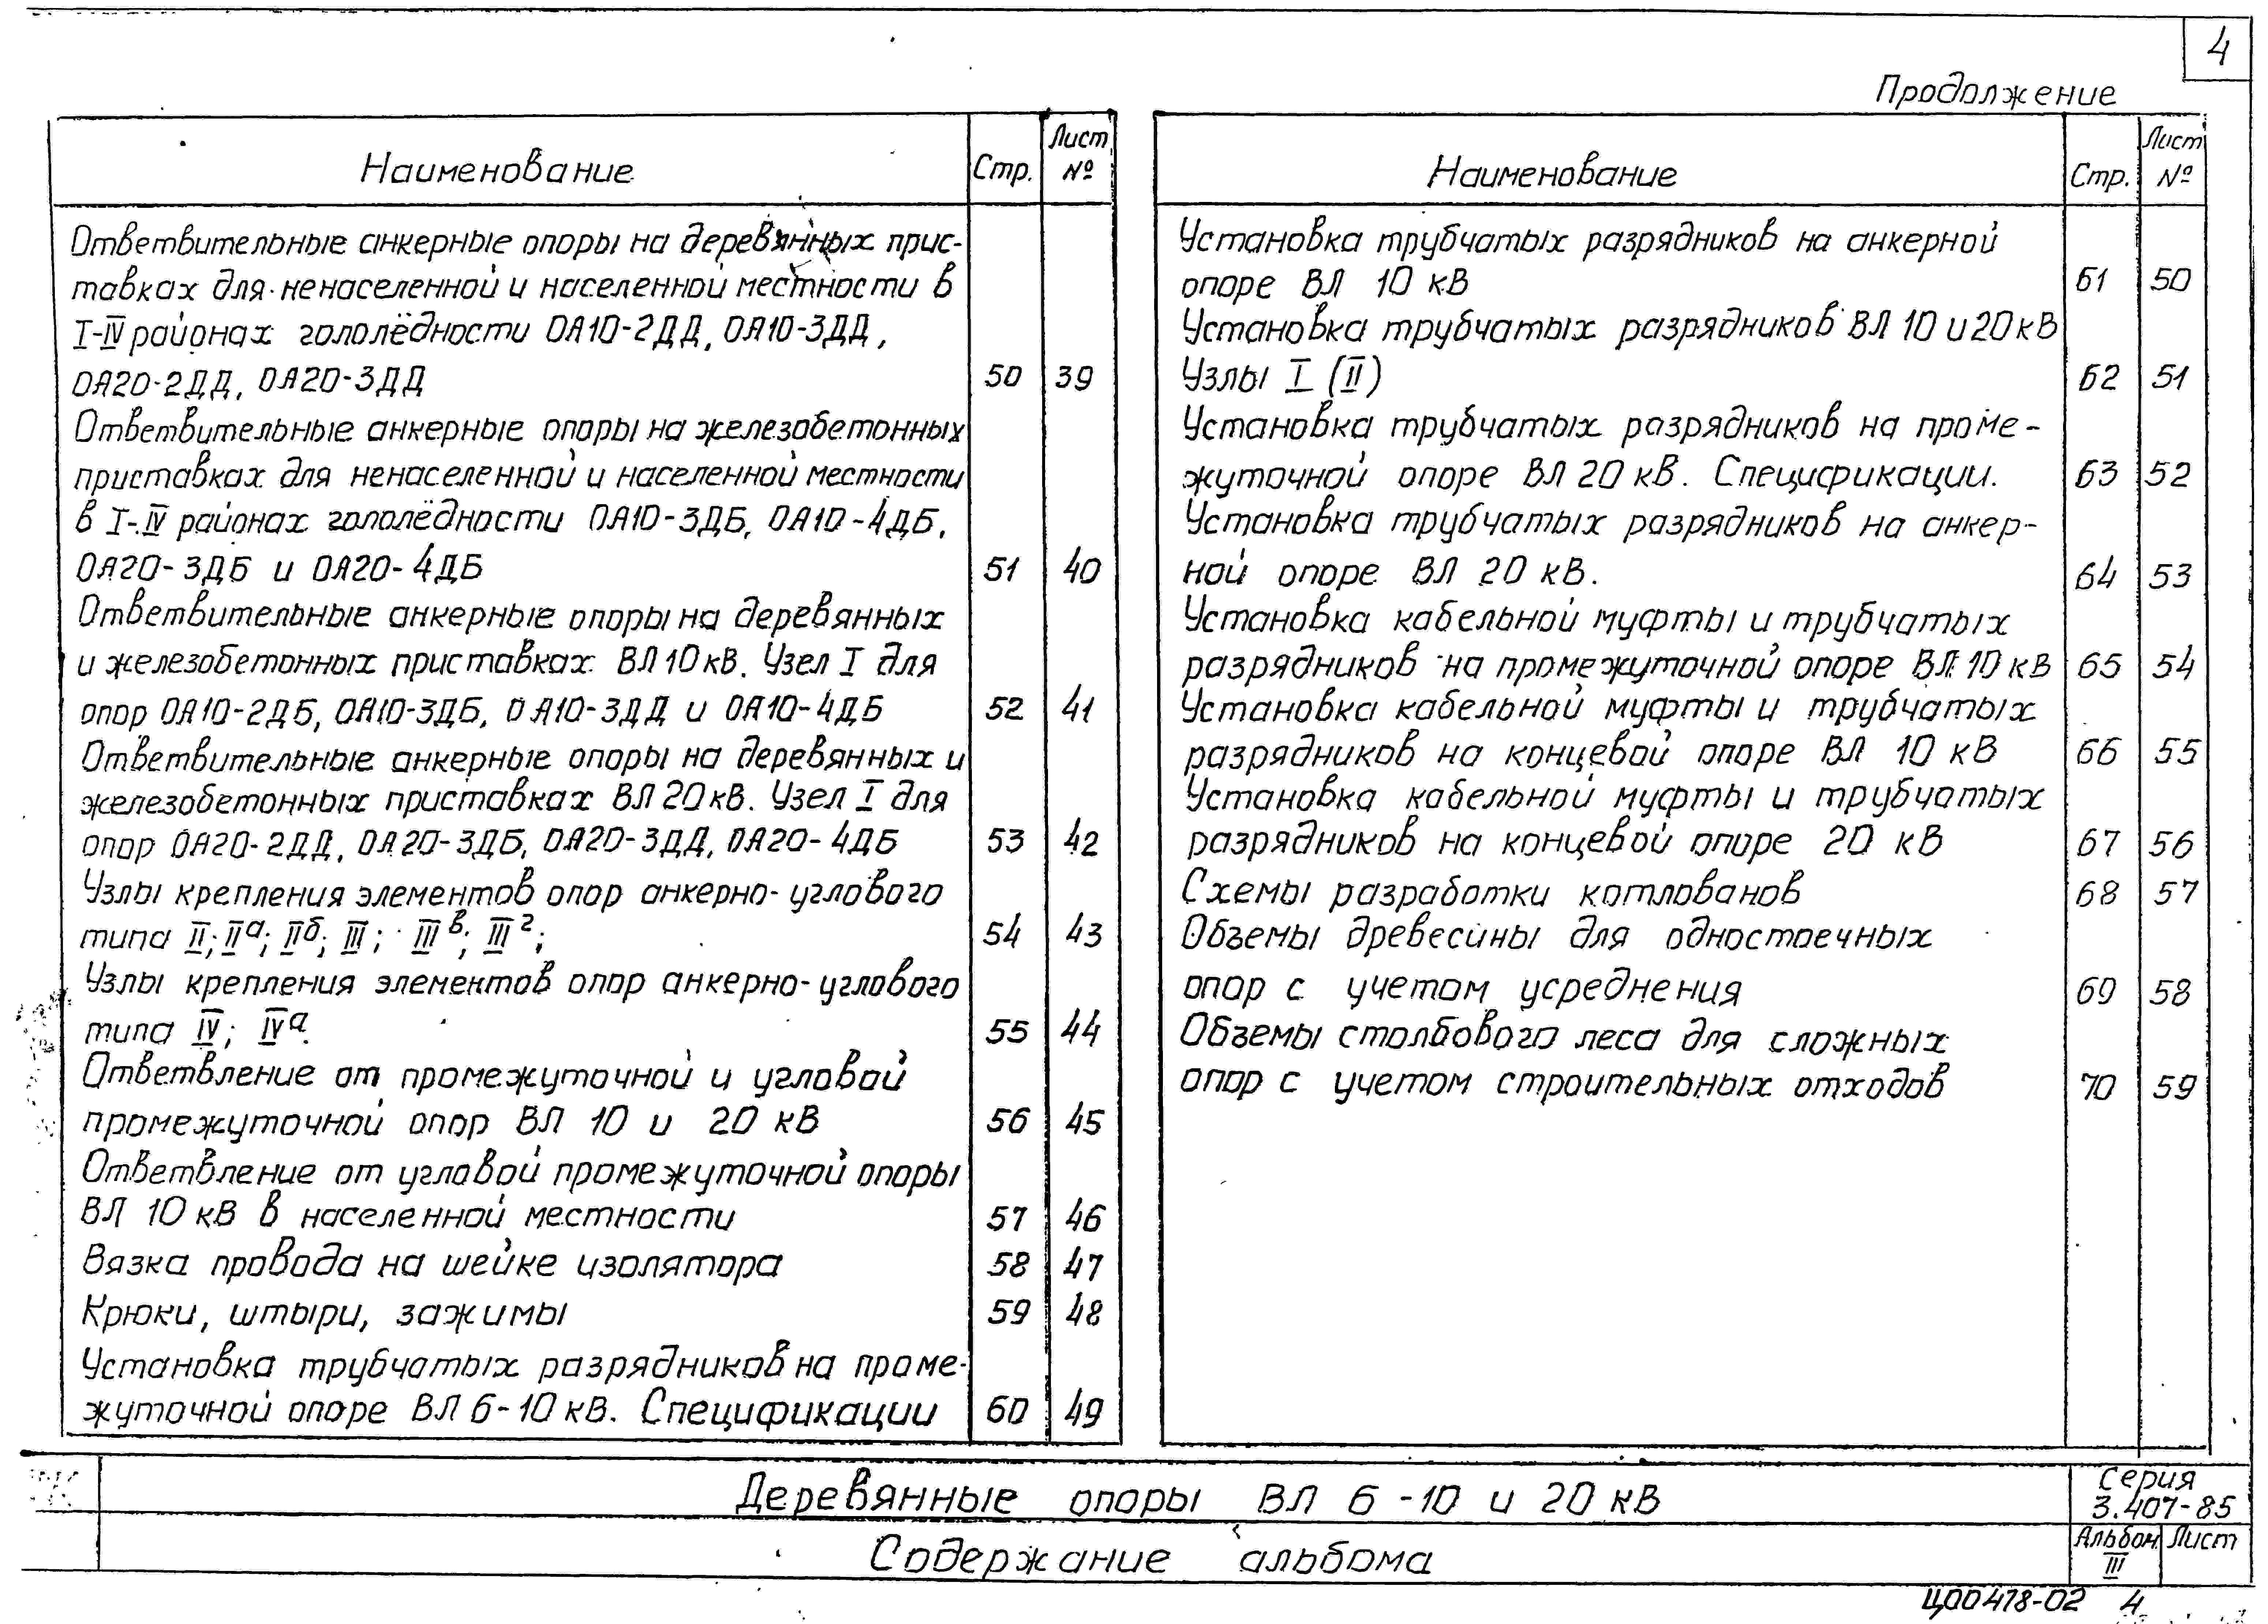 4
Продолжение
Наименование Стр. Лист №
Ответвительные анкерные опоры на деревянных прис-
тавках для ненаселенной и населенной местности в
I-IV районах гололёдности ОА10-2ДД, ОА10-3ДД,
ОА20-2ДД, ОА20-3ДД 50 39
Ответвительные анкерные опоры на железобетонных
приставках для ненаселенной и населенной местности
в I-IV районах гололёдности ОА10-3ДБ, ОА10-4ДБ,
ОА20-3ДБ и ОА20-4ДБ 51 40
Ответвительные анкерные опоры на деревянных
и железобетонных приставках ВЛ 10 кВ. Узел I для
опор ОА10-2ДБ, ОА10-3ДБ, ОА10-3ДД и ОА10-4ДБ 52 41
Ответвительные анкерные опоры на деревянных и
железобетонных приставках ВЛ 20 кВ. Узел I для
опор ОА20-2ДД, ОА20-3ДБ, ОА20-3ДД, ОА20-4ДБ 53 42
Узлы крепления элементов опор анкерно-углового
типа II; IIа; IIб; III; IIIв; IIIг; 54 43
Узлы крепления элементов опор анкерно-углового
типа IV; IVа. 55 44
Ответвление от промежуточной и угловой
промежуточной опор ВЛ 10 и 20 кВ 56 45
Ответвление от угловой промежуточной опоры
ВЛ 10 кВ в населенной местности 57 46
Вязка провода на шейке изолятора 58 47
Крюки, штыри, зажимы 59 48
Установка трубчатых разрядников на проме-
жуточной опоре ВЛ 6-10 кВ. Спецификации 60 49
Наименование Стр. Лист №
Установка трубчатых разрядников на анкерной
опоре ВЛ 10 кВ 61 50
Установка трубчатых разрядников ВЛ 10 и 20 кВ
Узлы I (II) 62 51
Установка трубчатых разрядников на проме-
жуточной опоре ВЛ 20 кВ. Спецификации. 63 52
Установка трубчатых разрядников на анкер-
ной опоре ВЛ 20 кВ. 64 53
Установка кабельной муфты и трубчатых
разрядников на промежуточной опоре ВЛ 10 кВ 65 54
Установка кабельной муфты и трубчатых
разрядников на концевой опоре ВЛ 10 кВ 66 55
Установка кабельной муфты и трубчатых
разрядников на концевой опоре 20 кВ 67 56
Схемы разработки котлованов 68 57
Объемы древесины для одностоечных
опор с учетом усреднения 69 58
Объемы столбового леса для сложных
опор с учетом строительных отходов 70 59
Деревянные опоры ВЛ 6-10 и 20 кВ
Серия
3.407-85
Содержание альбома
Альбом III Лист
Ц00478-02 4